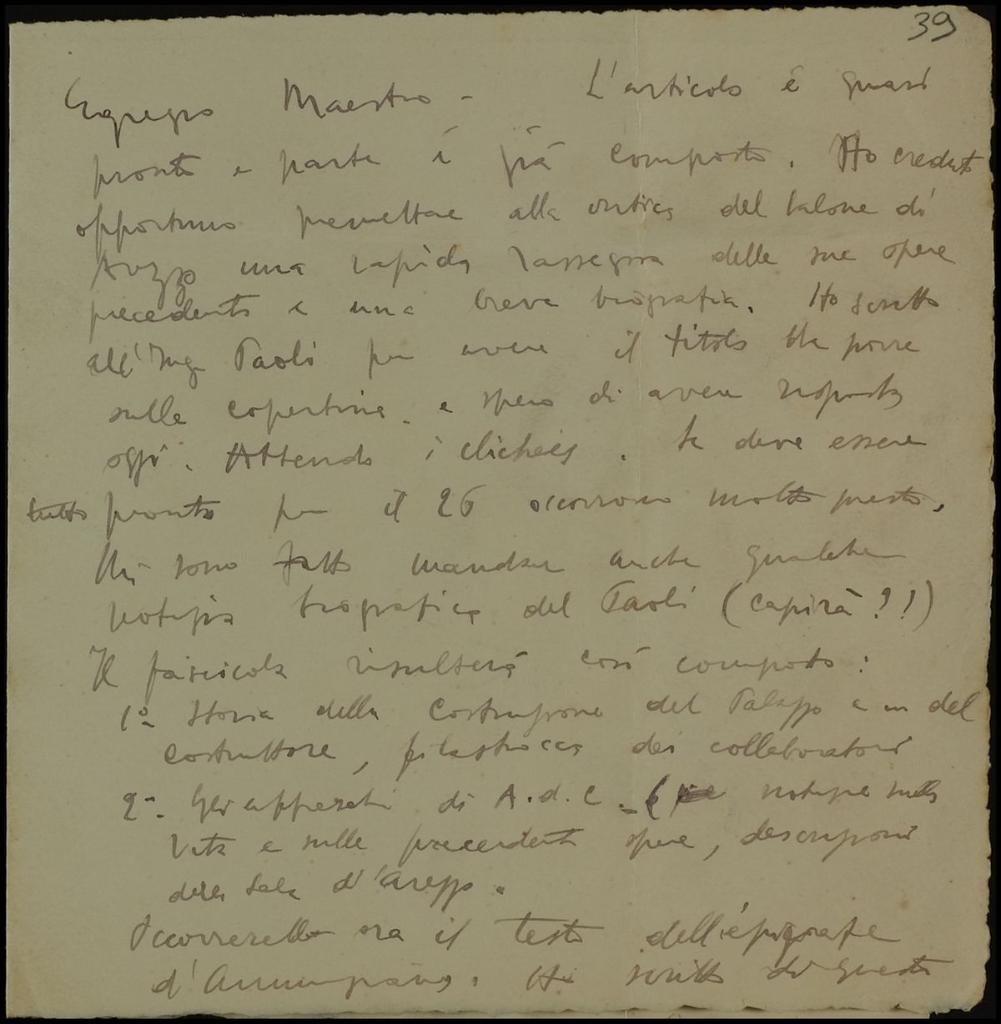 39
Egregio Maestro - L'articolo è quasi
pronto e parte è già composto. Ho creduto
opportuno premettere alla critica del salone di
Arezzo una rapida rassegna delle sue opere
precedenti e una breve biografia. Ho scritto
all'Ing. Paoli per avere il titolo da porre
sulle copertine e spero di avere risposta
oggi. Attendo i clichées. Se deve essere
tutto pronto per il 26 occorrono molto presto.
Mi sono fatto mandare anche qualche
notizia biografica del Paoli (capirà?!)
Il fascicolo risulterà così composto:
1º Storia della costruzione del Palazzo e del
costruttore, filastrocca dei collaboratori
2º Gli affreschi di A.d.C. - notizie sulla
vita e sulle precedenti opere, descrizioni
della Sala d'Arezzo.
Occorrerebbe ora il testo dell'epigrafe
d'Annunziana. Ho scritto di questo